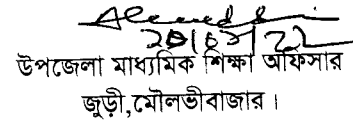 ২০/০২/22
উপজেলা মাধ্যমিক শিক্ষা অফিসার
জুড়ী,মৌলভীবাজার।